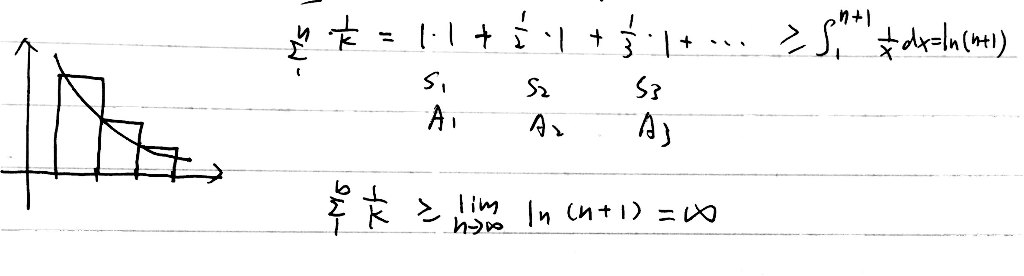 ∑₁ⁿ 1/k = 1·1 + 1/2·1 + 1/3·1 + ... ≥ ∫₁ⁿ⁺¹ 1/x dx = ln(n+1)
S₁ S₂ S₃
A₁ A₂ A₃
∑₁^∞ 1/k ≥ lim n→∞ ln (n+1) = ∞